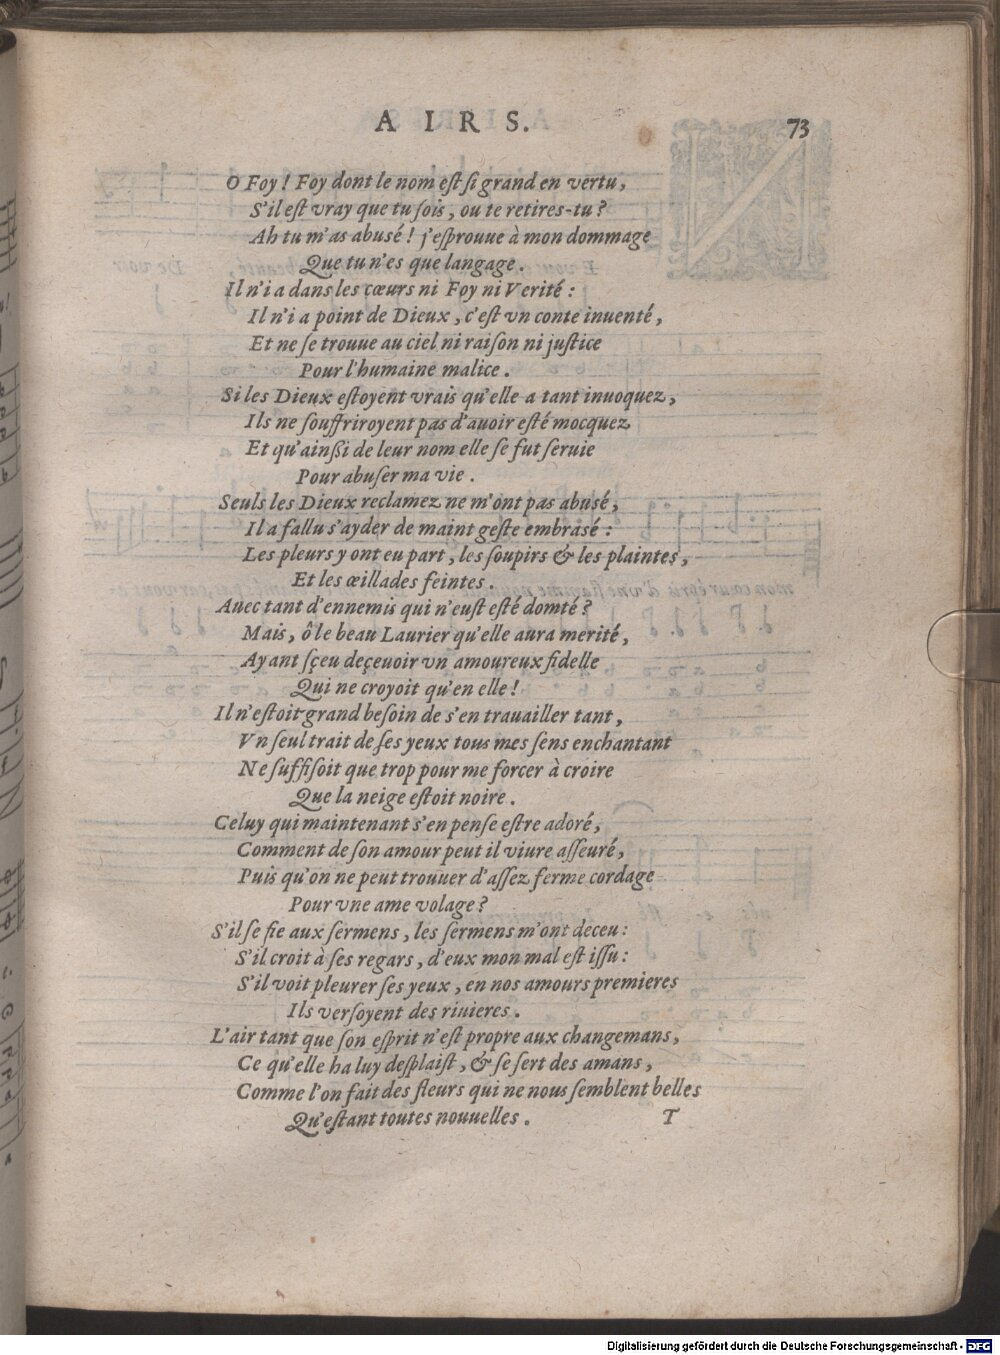 AIRS. 73
O Foy ! Foy dont le nom eſt ſi grand en vertu,
S'il eſt vray que tu ſois, ou te retires-tu ?
Ah tu m'as abusé ! j'eſprouue à mon dommage
Que tu n'es que langage.
Il n'i a dans les cœurs ni Foy ni Verité :
Il n'i a point de Dieux, c'eſt vn conte inuenté,
Et ne ſe trouue au ciel ni raiſon ni juſtice
Pour l'humaine malice.
Si les Dieux eſtoyent vrais qu'elle a tant inuoquez,
Ils ne ſouffriroyent pas d'auoir eſté mocquez
Et qu'ainſsi de leur nom elle ſe fut ſeruie
Pour abuſer ma vie.
Seuls les Dieux reclamez ne m'ont pas abusé,
Il a fallu s'ayder de maint geſte embrasé :
Les pleurs y ont eu part, les ſoupirs & les plaintes,
Et les œillades feintes.
Auec tant d'ennemis qui n'euſt eſté domté ?
Mais, ô le beau Laurier qu'elle aura merité,
Ayant ſçeu deçeuoir vn amoureux fidelle
Qui ne croyoit qu'en elle !
Il n'eſtoit grand beſoin de s'en trauailler tant,
Vn ſeul trait de ſes yeux tous mes ſens enchantant
Ne ſuffiſoit que trop pour me forcer à croire
Que la neige eſtoit noire.
Celuy qui maintenant s'en penſe eſtre adoré,
Comment de ſon amour peut il viure aſſeuré,
Puis qu'on ne peut trouuer d'aſſez ferme cordage
Pour vne ame volage ?
S'il ſe fie aux ſermens, les ſermens m'ont deceu :
S'il croit à ſes regars, d'eux mon mal eſt iſſu :
S'il voit pleurer ſes yeux, en nos amours premieres
Ils verſoyent des riuieres.
L'air tant que ſon eſprit n'eſt propre aux changemans,
Ce qu'elle ha luy deſplaiſt, & ſe ſert des amans,
Comme l'on fait des fleurs qui ne nous ſemblent belles
Qu'eſtant toutes nouuelles. T
Digitalisierung gefördert durch die Deutsche Forschungsgemeinschaft - DFG